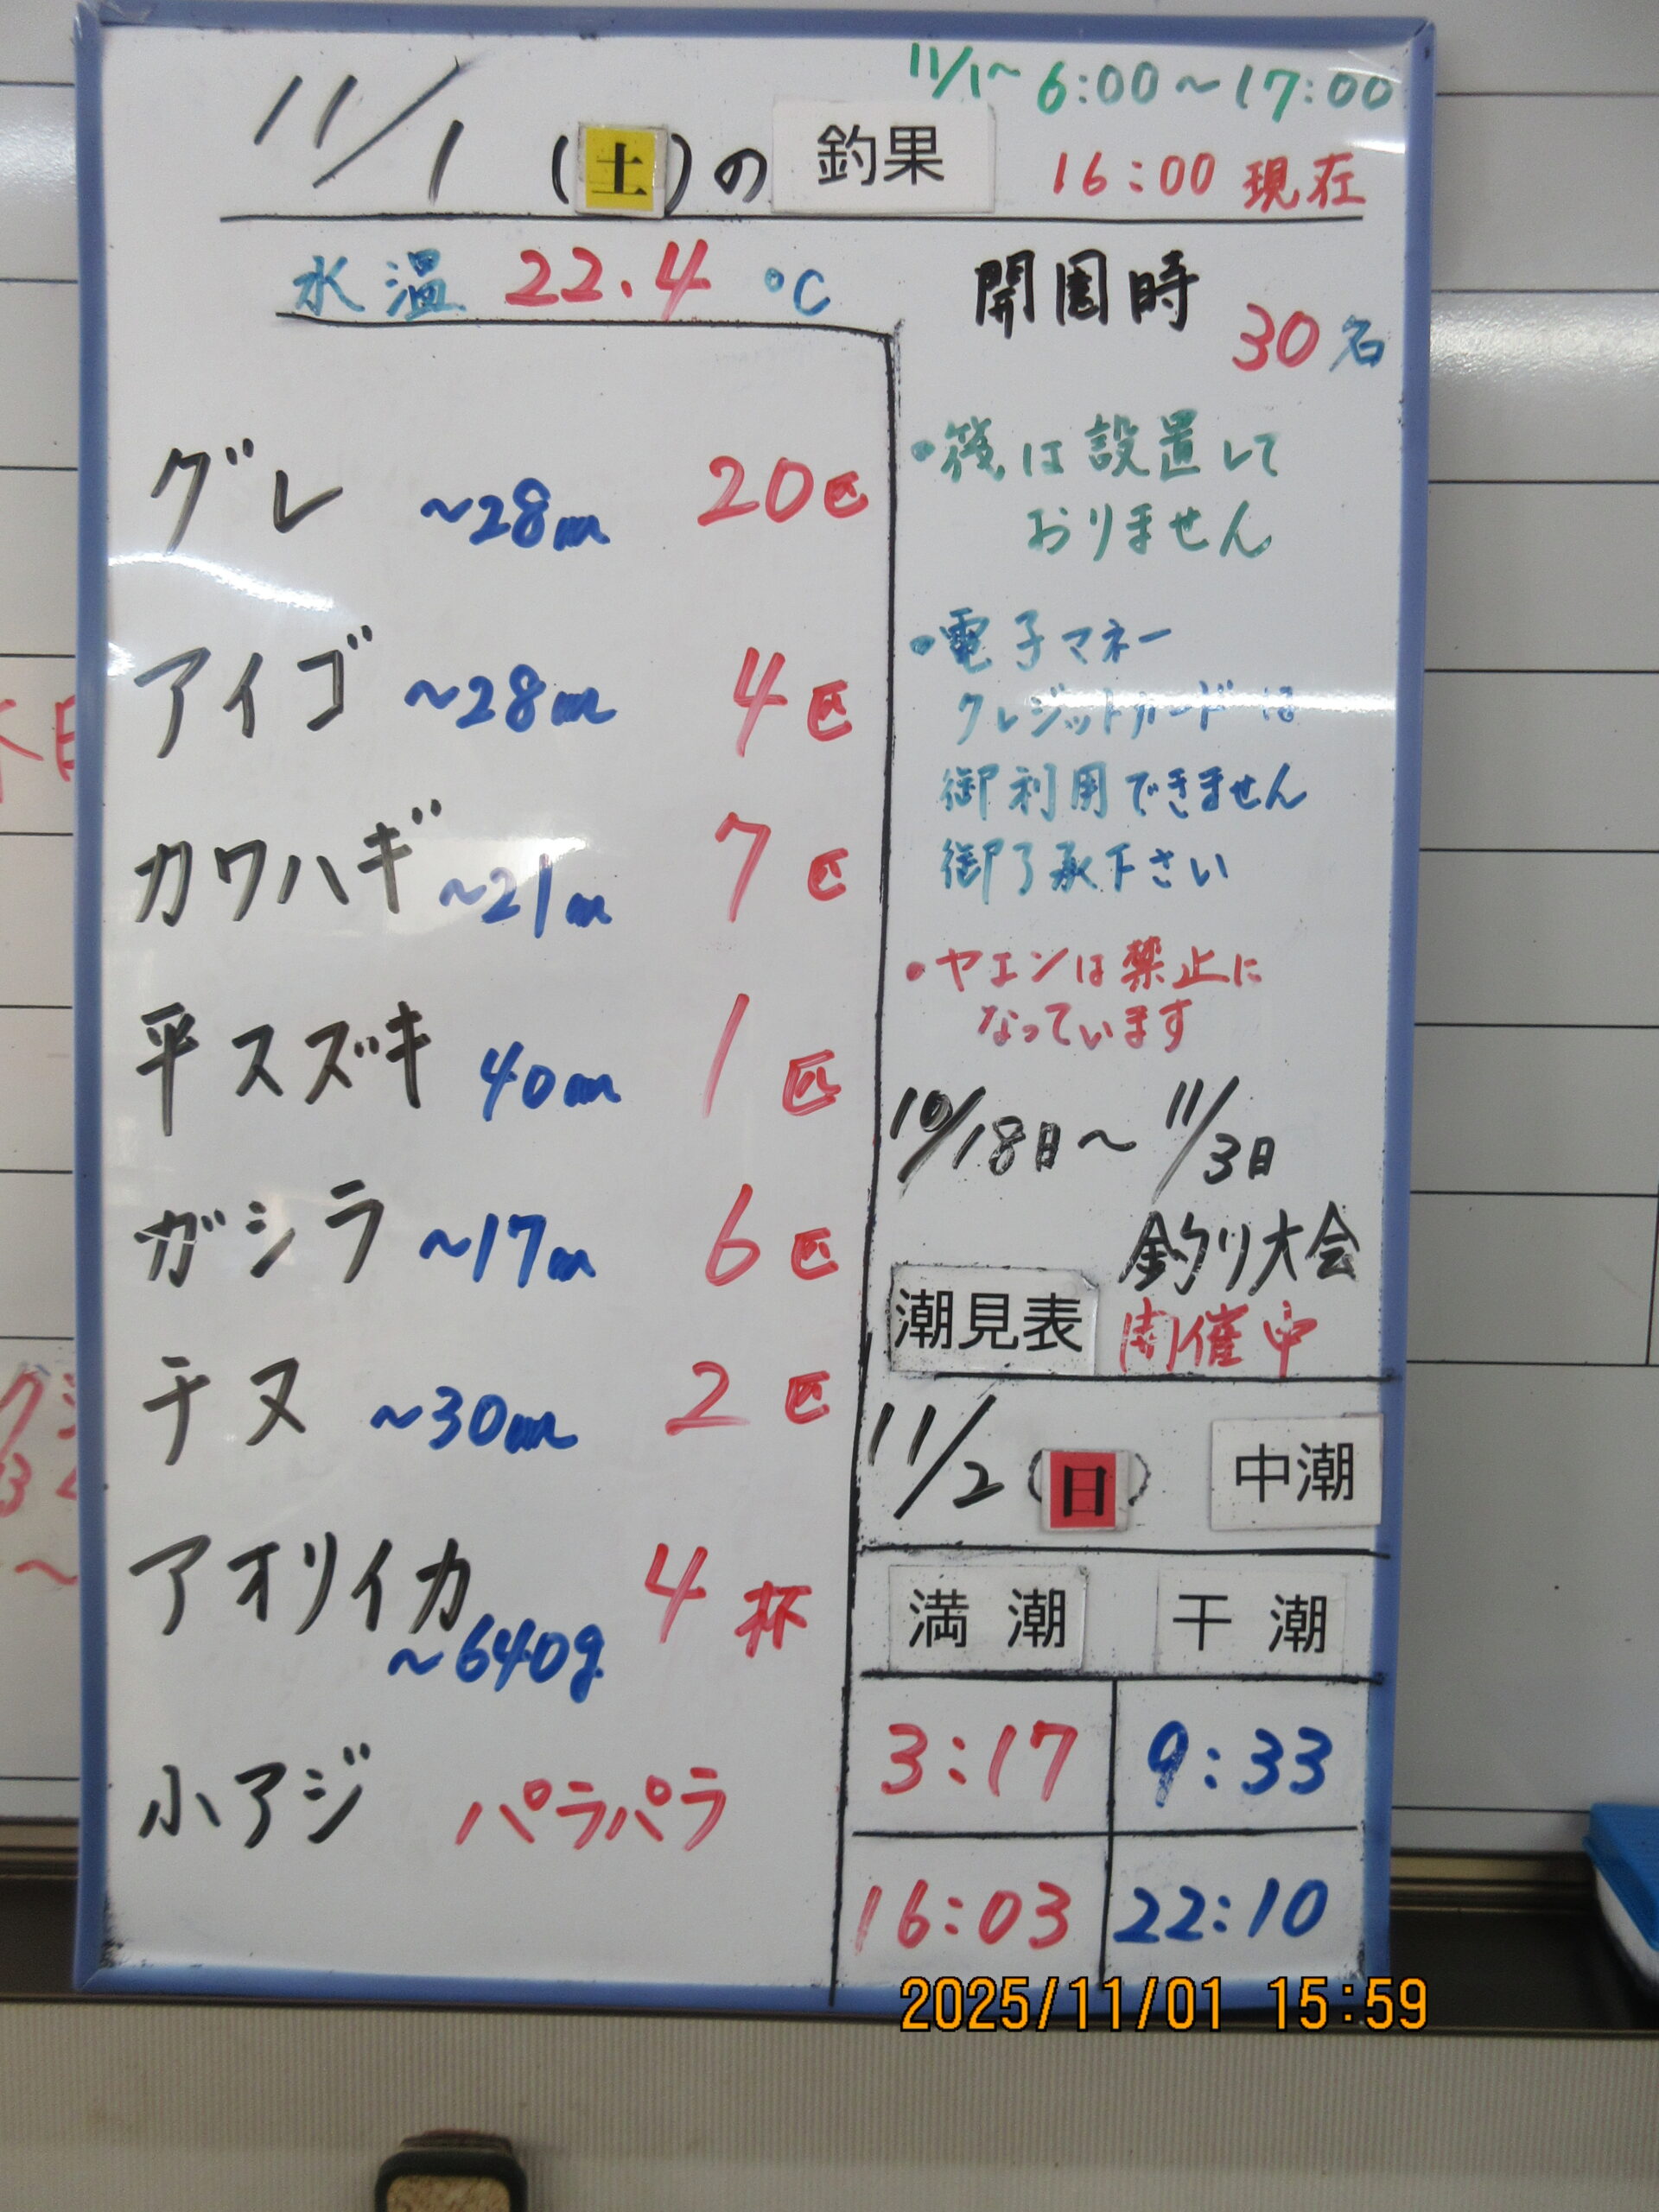 11/1~ 6:00~17:00
11/1 (土)の 釣果 16:00 現在
水温 22.4 ℃
開園時 30名
グレ ~28㎝ 20匹
アイゴ ~28㎝ 4匹
カワハギ ~21㎝ 7匹
平スズキ 40㎝ 1匹
ガシラ ~17㎝ 6匹
チヌ ~30㎝ 2匹
アオリイカ ~640g 4杯
小アジ パラパラ
・筏は設置して
おりません
・電子マネー
クレジットカードは
御利用できません
御了承下さい
・ヤエンは禁止に
なっています
10/18日~11/3日
釣り大会
開催中
潮見表
11/2 (日) 中潮
満潮 干潮
3:17 9:33
16:03 22:10
2025/11/01 15:59